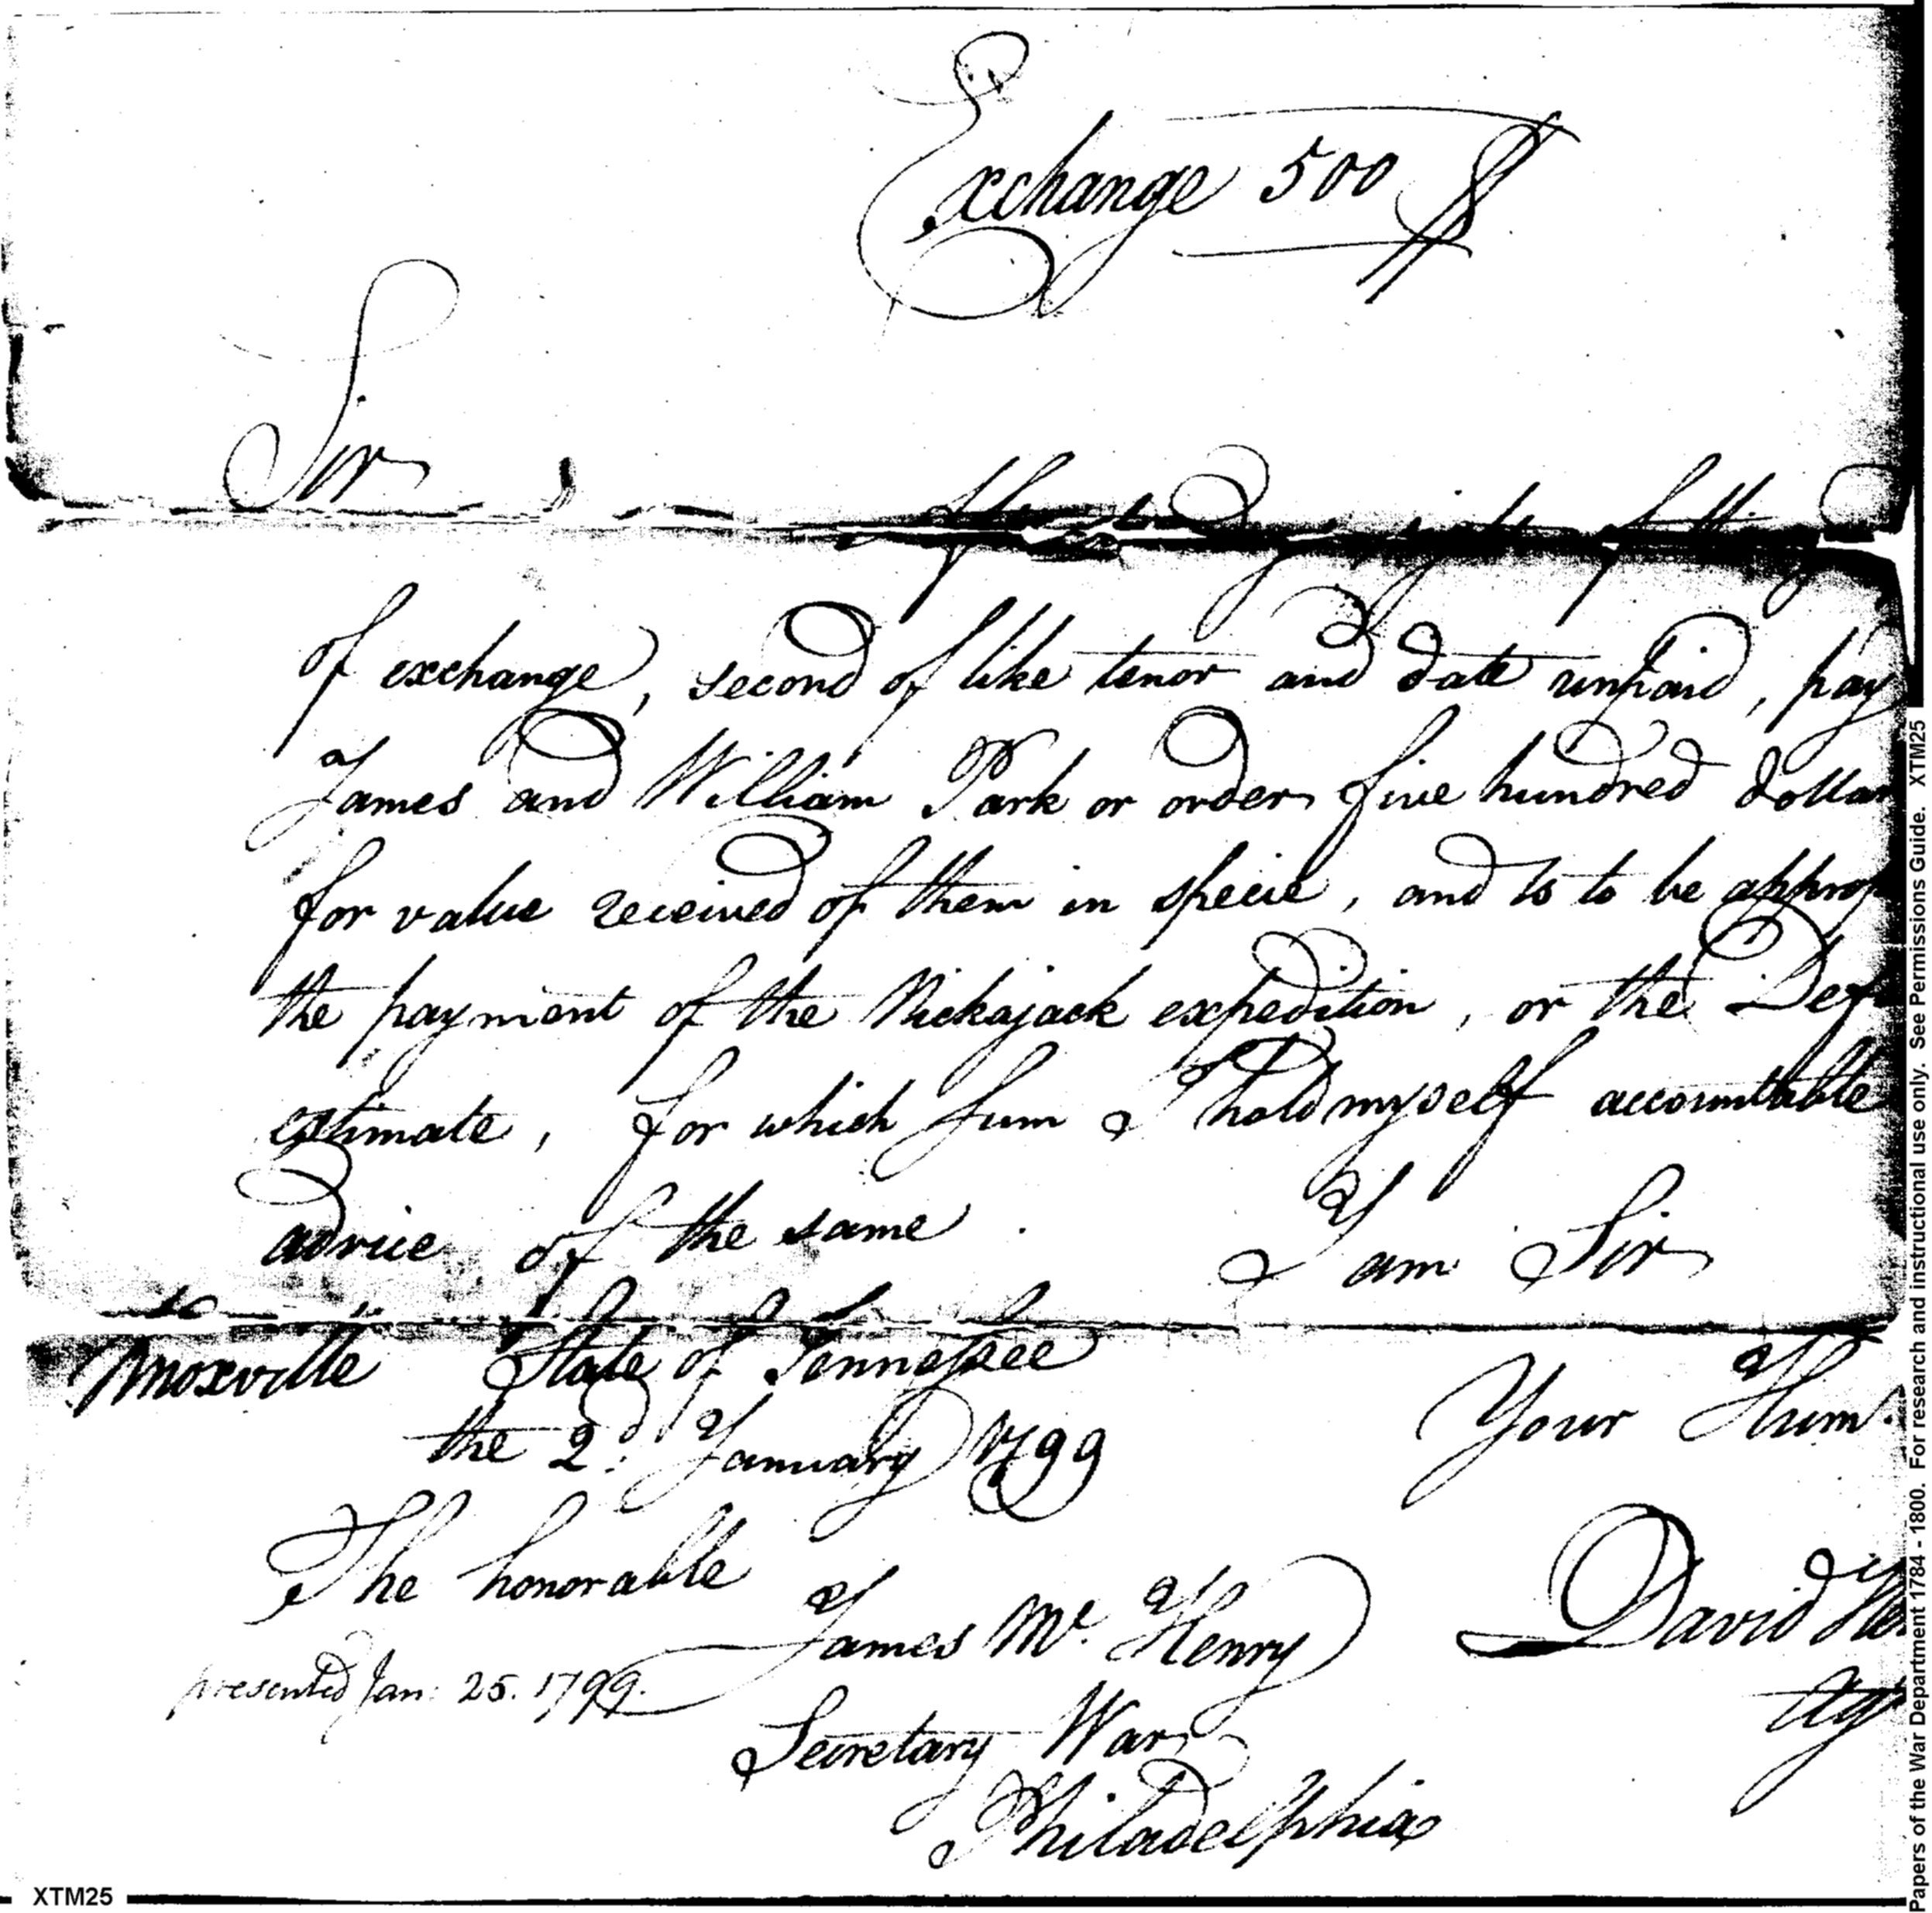 Exchange 500 $
Sir
after days sight of this
of exchange, second of like tenor and date unpaid, pay
James and William Park or order five hundred dollar
for value received of them in specie, and is to be approp
the payment of the Nickajack expedition, or the Def
estimate, for which sum I hold myself accountable
advice of the same
I am Sir
Knoxville State of Tennessee
the 2d. January 1799
Your Hum.
The honorable
James Mc. Henry
David He
presented Jan: 25. 1799.
Ag
Secretary War
Philadelphia
XTM25
Papers of the War Department 1784 - 1800. For research and instructional use only. See Permissions Guide. XTM25